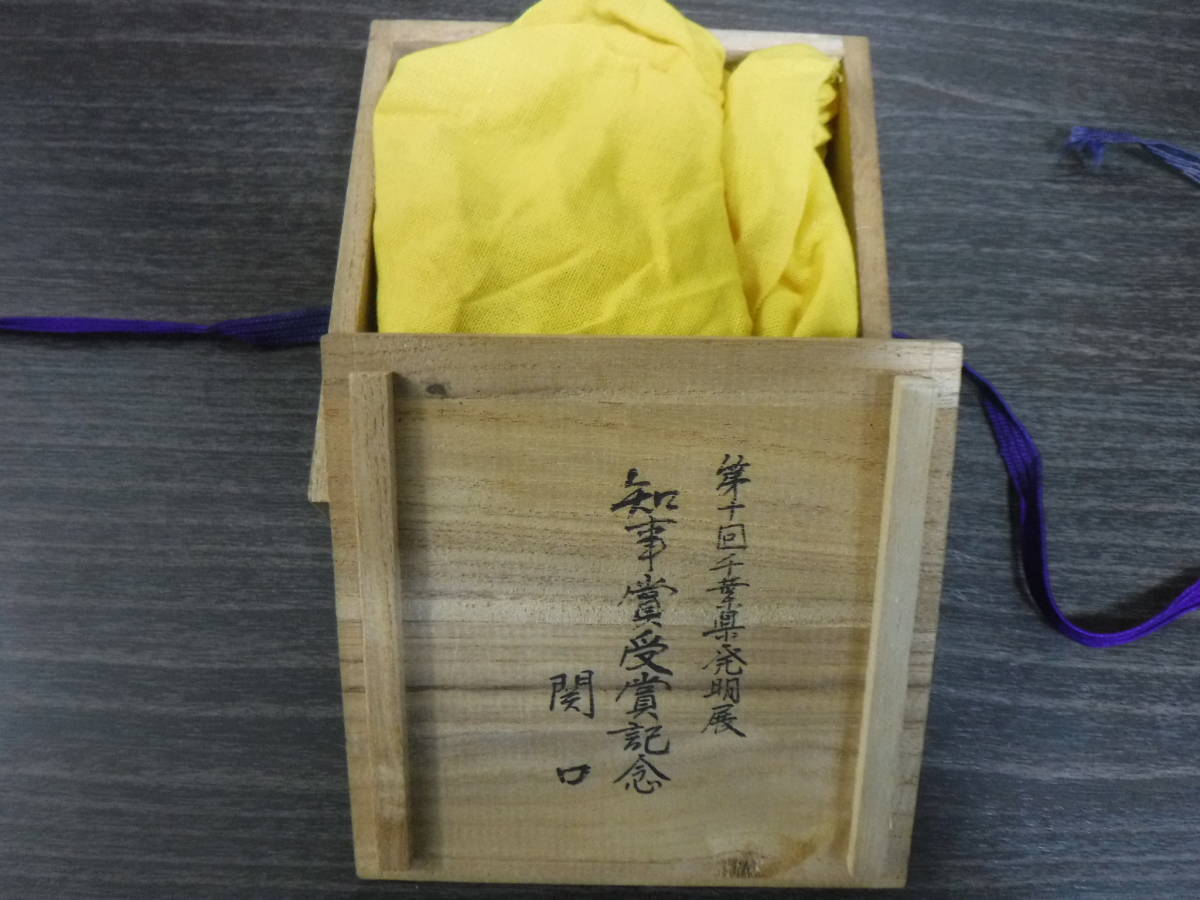 第十回千葉県発明展
知事賞受賞記念
関口